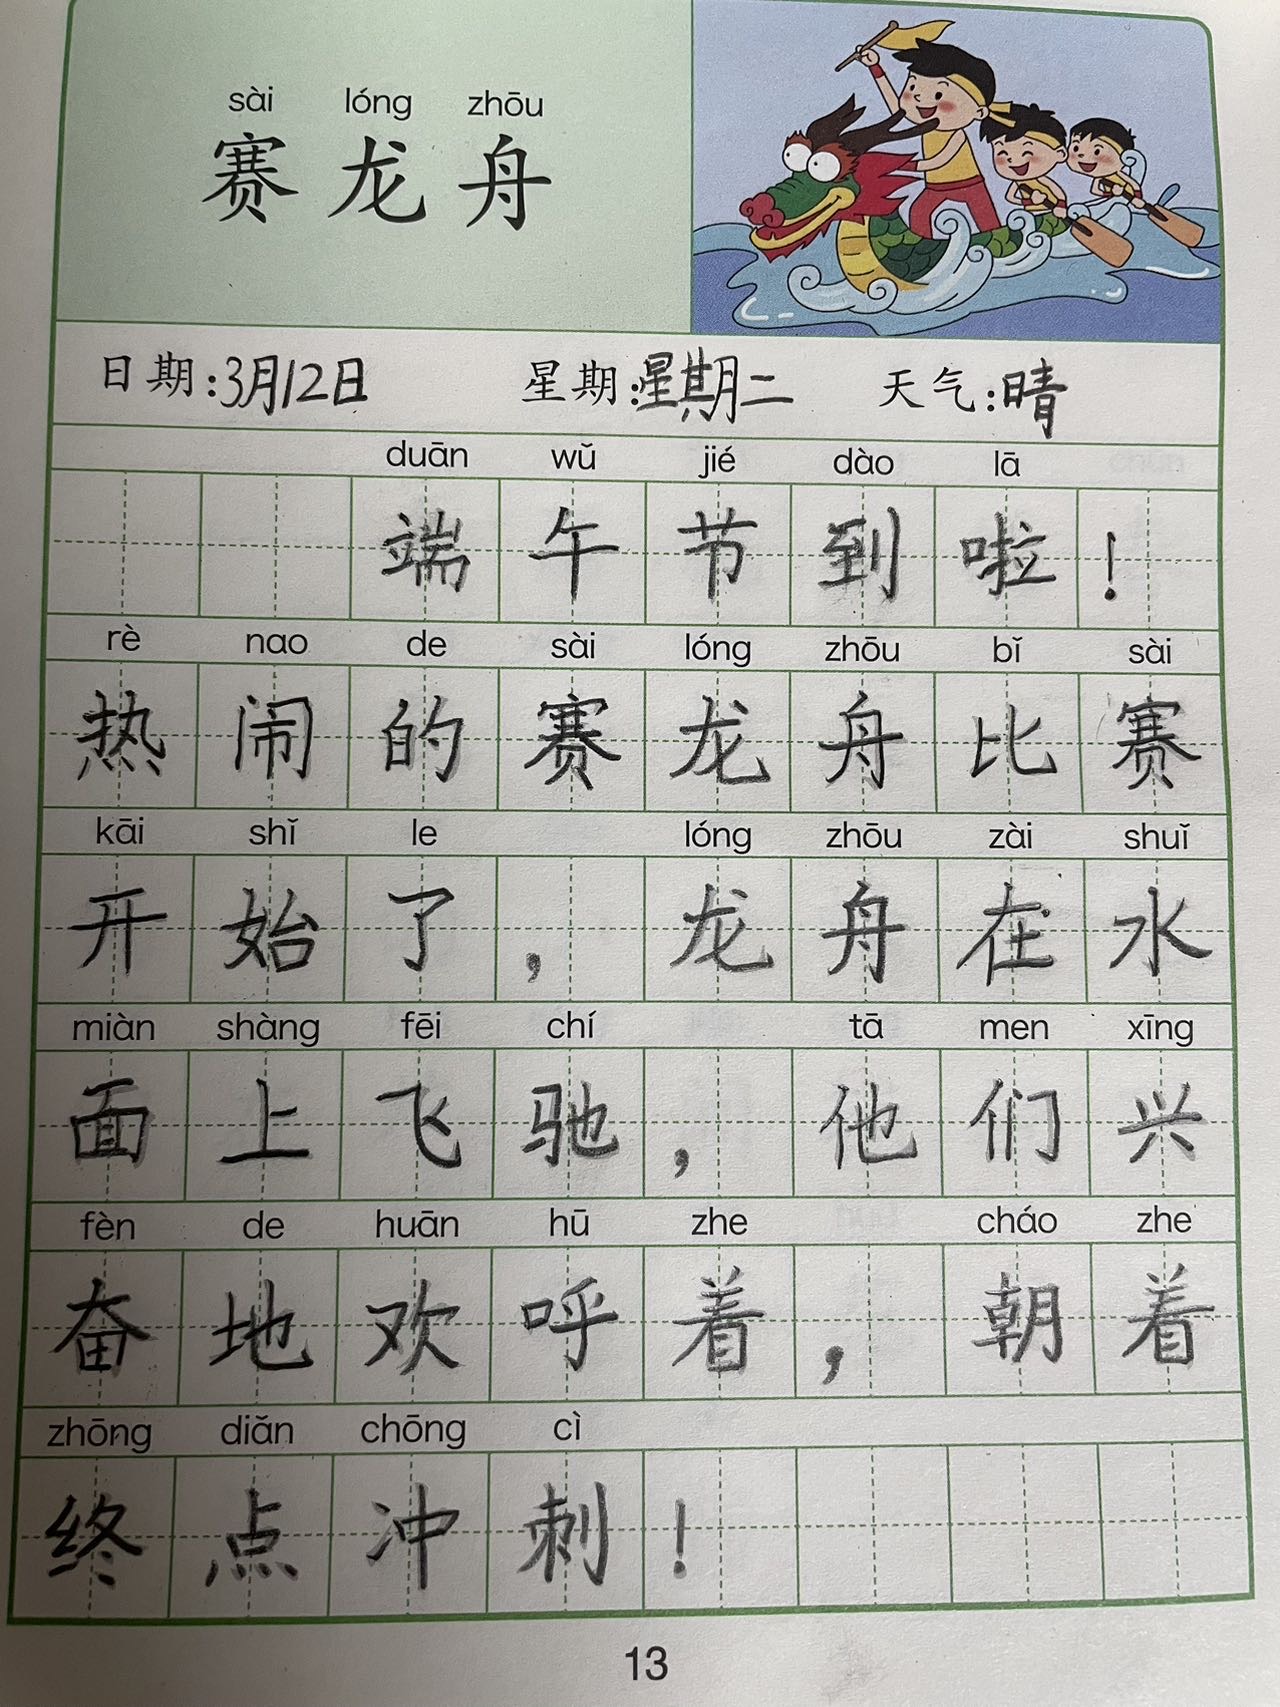 sài lóng zhōu
赛龙舟
日期:3月12日 星期:星期二 天气:晴
duān wǔ jié dào lā
端午节到啦!
rè nao de sài lóng zhōu bǐ sài
热闹的赛龙舟比赛
kāi shǐ le lóng zhōu zài shuǐ
开始了,龙舟在水
miàn shàng fēi chí tā men xīng
面上飞驰,他们兴
fèn de huān hū zhe cháo zhe
奋地欢呼着,朝着
zhōng diǎn chōng cì
终点冲刺!
13